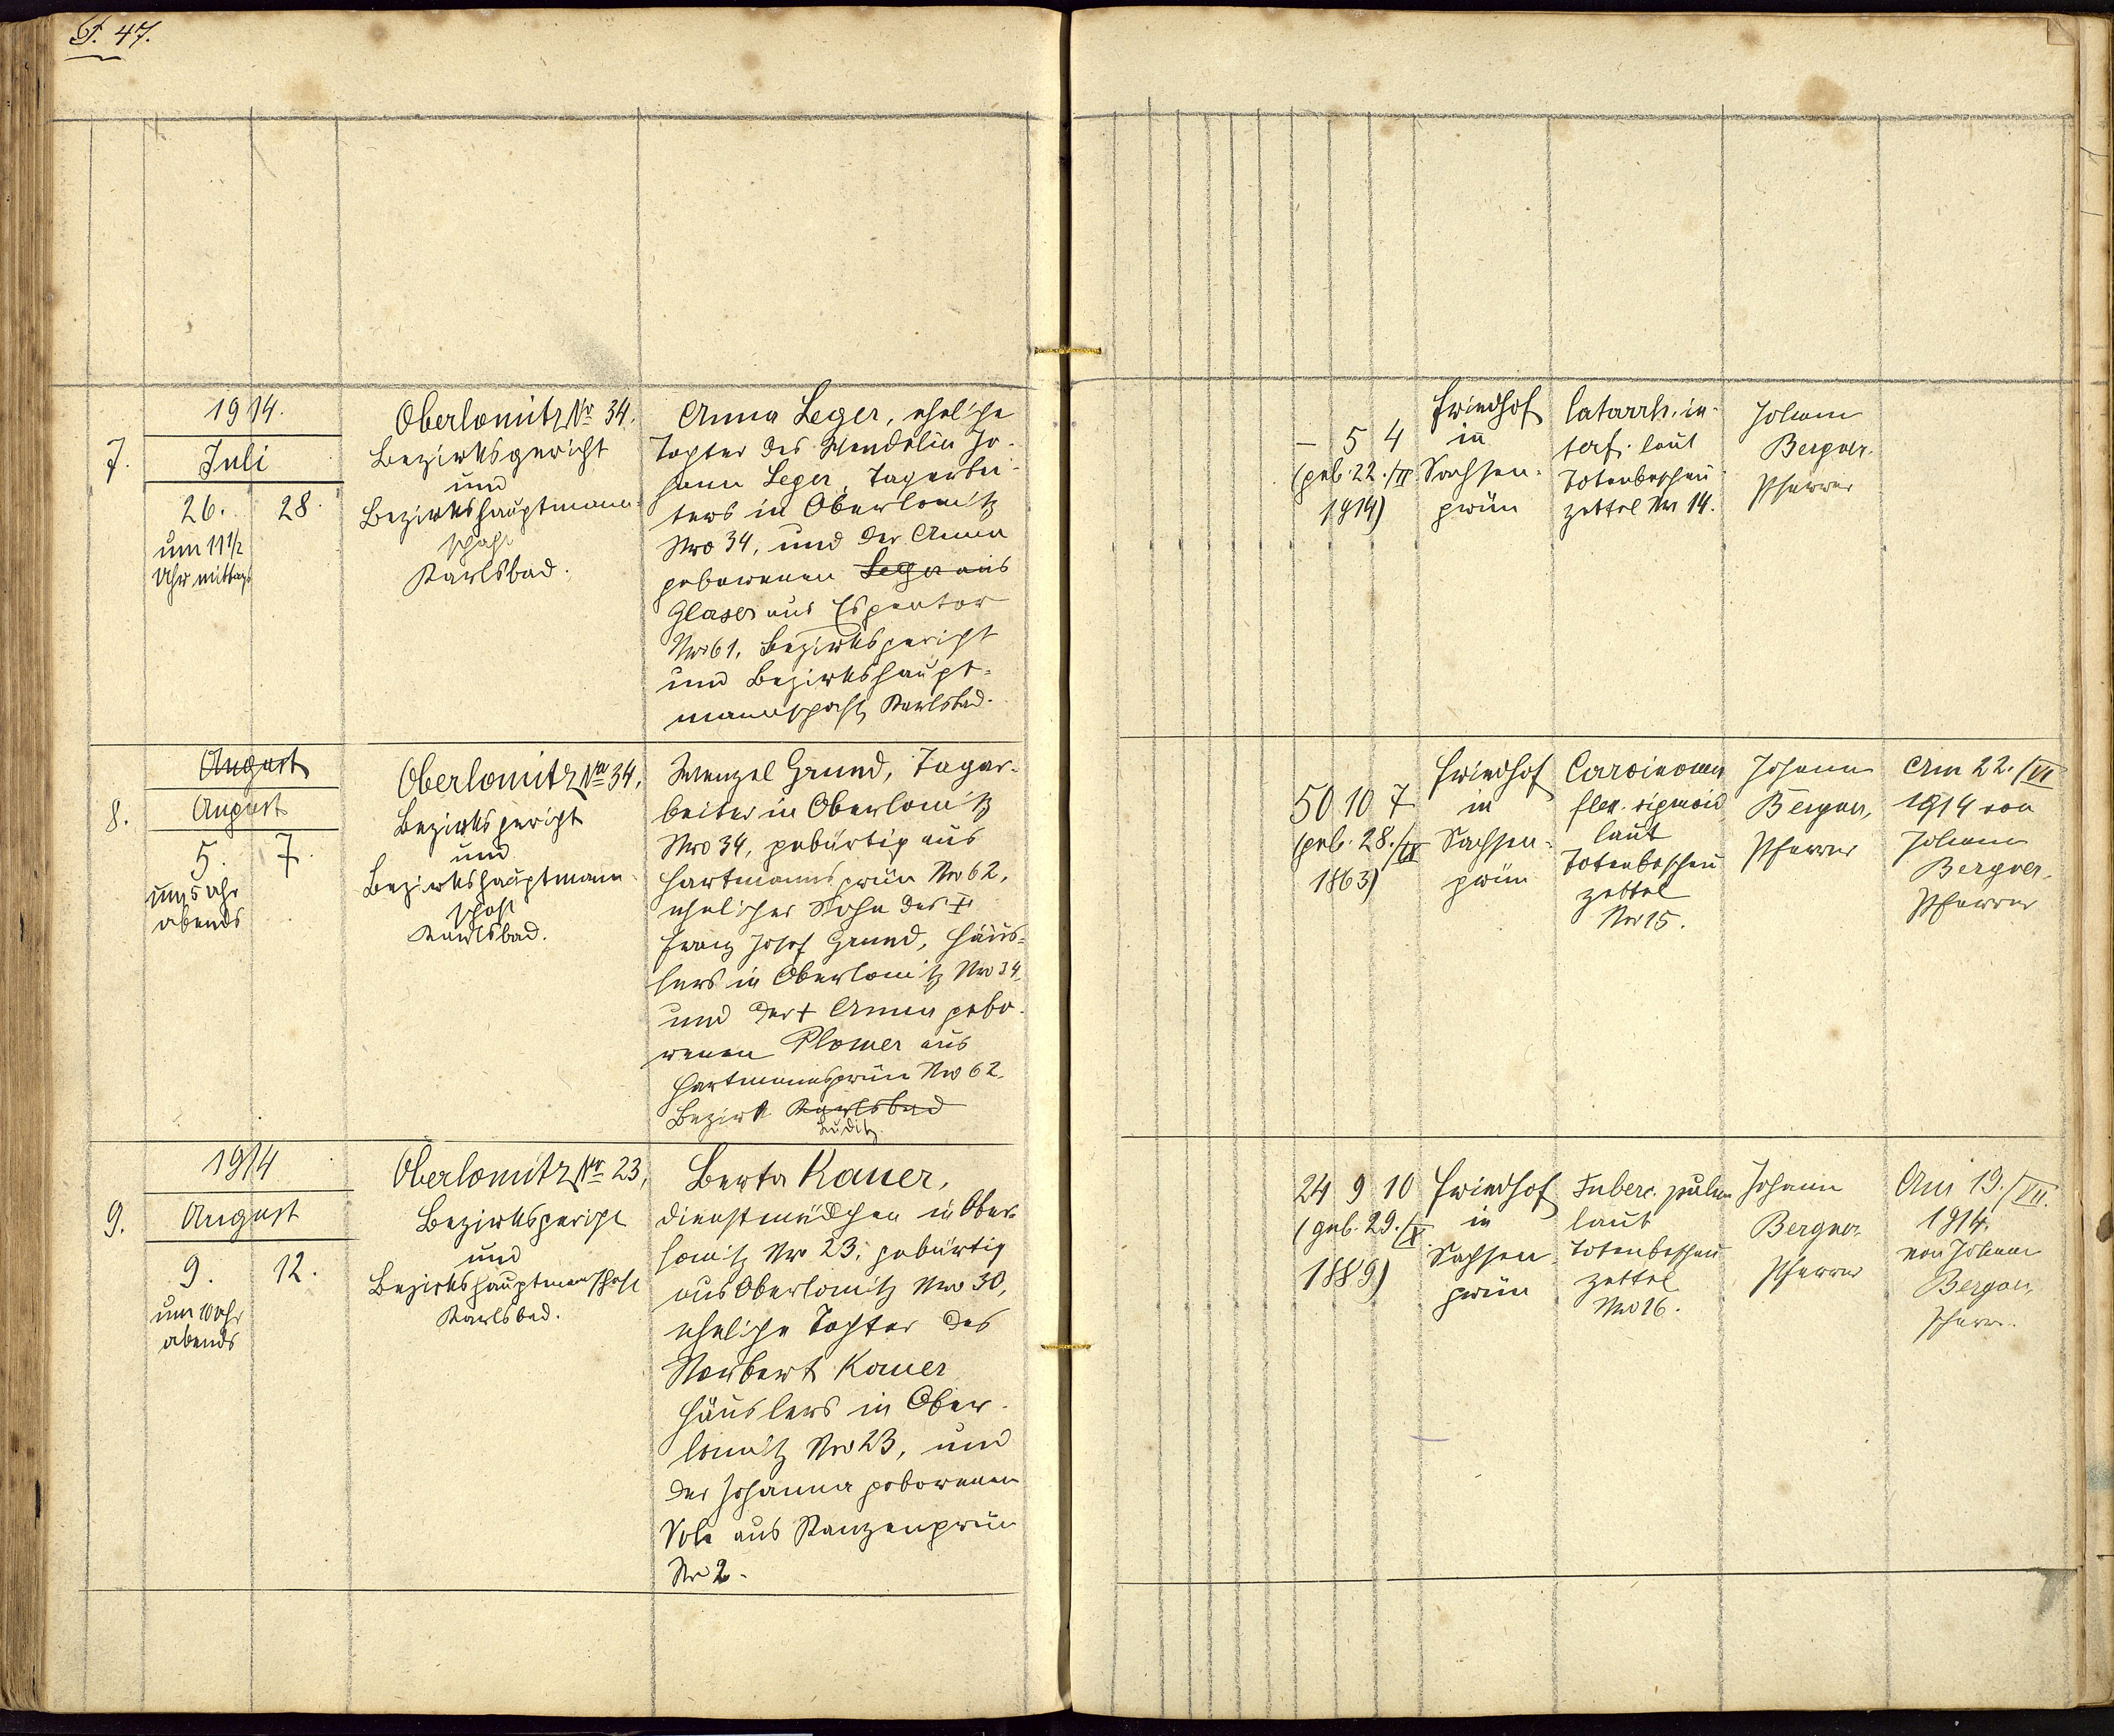 47.
7.
1914.
Juli
26. 28.
um 11 1/2
Uhr mittags
Oberlomitz Nr 34.
Bezirksgericht
und
Bezirkshauptmann-
schaft
Karlsbad.
Anna Leger, eheliche
Tochter des Wendelin Jo-
hann Leger, Tagarbei-
ters in Oberlomitz
Nro 34, und der Anna
geborenen Leger aus
Glaser aus Espentor
Nro 61, Bezirksgericht
und Bezirkshaupt-
mannschaft Karlsbad.
– 5 4
(geb. 22./II
1914)
Friedhof
in
Sachsen-
grün
Catarrh. in-
laut
Totenbeschau-
zettel Nr 14.
Johann
Bergner
Pfarrer
8.
August
August
5. 7.
um 5 Uhr
abends
Oberlomitz Nro 34,
Bezirksgericht
und
Bezirkshauptmann-
schaft
Karlsbad.
Wenzel Grund, Tagar-
beiter in Oberlomitz
Nro 34, gebürtig aus
Hartmannsgrün Nro 62,
ehelicher Sohn des †
Franz Josef Grund, Häus-
lers in Oberlomitz Nro 34
und der † Anna gebo-
renen Plomer aus
Hartmannsgrün Nro 62.
Bezirk Karlsbad
Luditz
50 10 7
(geb. 28./IX
1863)
Friedhof
in
Sachsen-
grün
Carcinoma
flex. sigmoid
laut
Totenbeschau
zettel
Nro 15.
Johann
Bergner,
Pfarrer
Am 22./VI
1914 von
Johann
Bergner,
Pfarrer
9.
1914
August
9. 12.
um 10 Uhr
abends
Oberlomitz Nr 23,
Bezirksgericht
und
Bezirkshauptmannschaft
Karlsbad.
Berta Kauer,
Dienstmädchen in Ober-
lomitz Nro 23, gebürtig
aus Oberlomitz Nro 30,
eheliche Tochter des
Norbert Kauer
Häuslers in Ober-
lomitz Nro 23, und
der Johanna geborenen
aus Stanzengrün
Nr 2.
24 9 10
(geb. 29./X
1889)
Friedhof
in
Sachsen-
grün
Tuberc. pulm
laut
Totenbeschau
zettel
Nro 16.
Johann
Bergner
Pfarrer
Am 19./VII.
1914.
von Johann
Bergner
Pfarr.